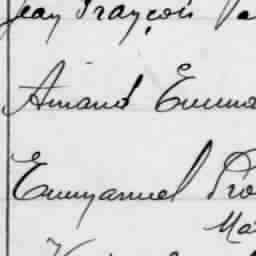 Jean François
Amand Emma
Emmyanuel Pro
Ma